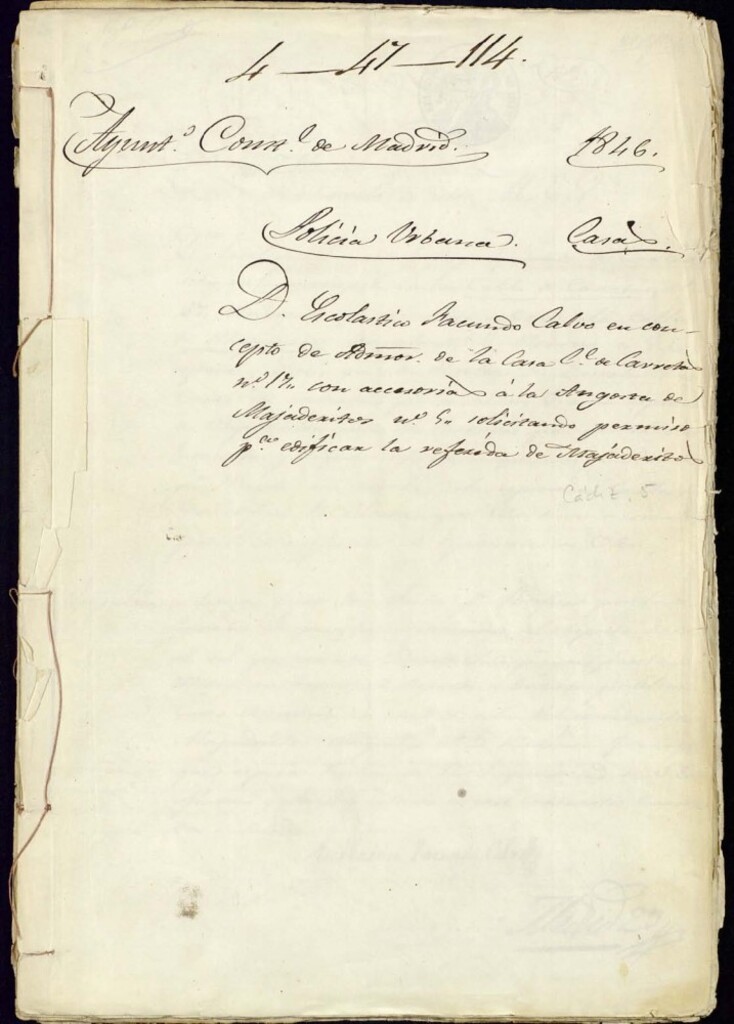 4 — 47 — 114.
Ayunt.º Conz.l de Madrid. 1846.
Policia Urbana. Casas.
D. Escolastico Facundo Calvo en con-
cepto de Admor. de la Casa C.e de Carretas
nº 17,, con accesorias á la Angosta de
Majaderitos nº 5,, solicitando permiso
p.a edificar la referida de Majaderitos
Cádiz. 5